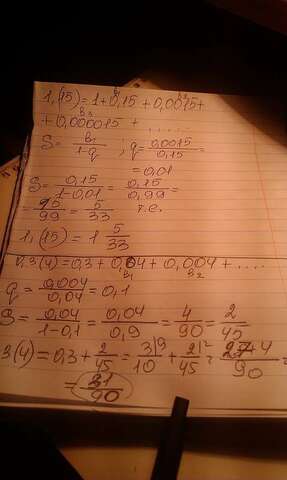 1,(15)=1+0,15+0,0015+
b1 b2
+0,000015+.....
b3
S= b1/1-q ; q= 0,0015/0,15 =
=0,01
S= 0,15/1-0,01 = 0,15/0,99 =
= 15/99 = 5/33 т.е.
1,(15)=1 5/33
0,3(4)=0,3+0,04+0,004+....
b1 b2
q= 0,004/0,04 =0,1
S= 0,04/1-0,1 = 0,04/0,9 = 4/90 = 2/45
3(4)=0,3+ 2/45 = 3|9/10 + 2|2/45 = 27+4/90 =
= 31/90